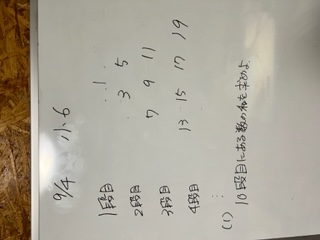 9/4 小6
1段目 1
2段目 3 5
3段目 7 9 11
4段目 13 15 17 19
⋮
(1) 10段目にある数の和を求めよ